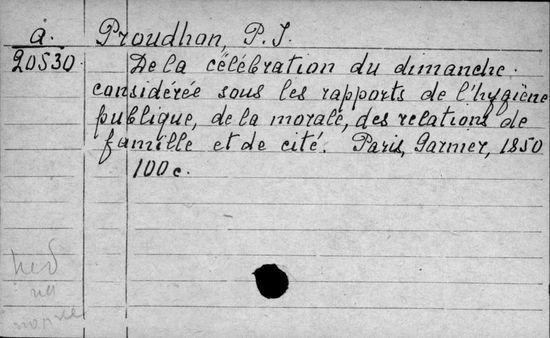 a. Proudhon, P. J.
20530. De la célébration du dimanche.
considérée sous les rapports de l'hygiène
publique, de la morale, des relations de
famille et de cité. Paris, Garnier, 1850
100 c.